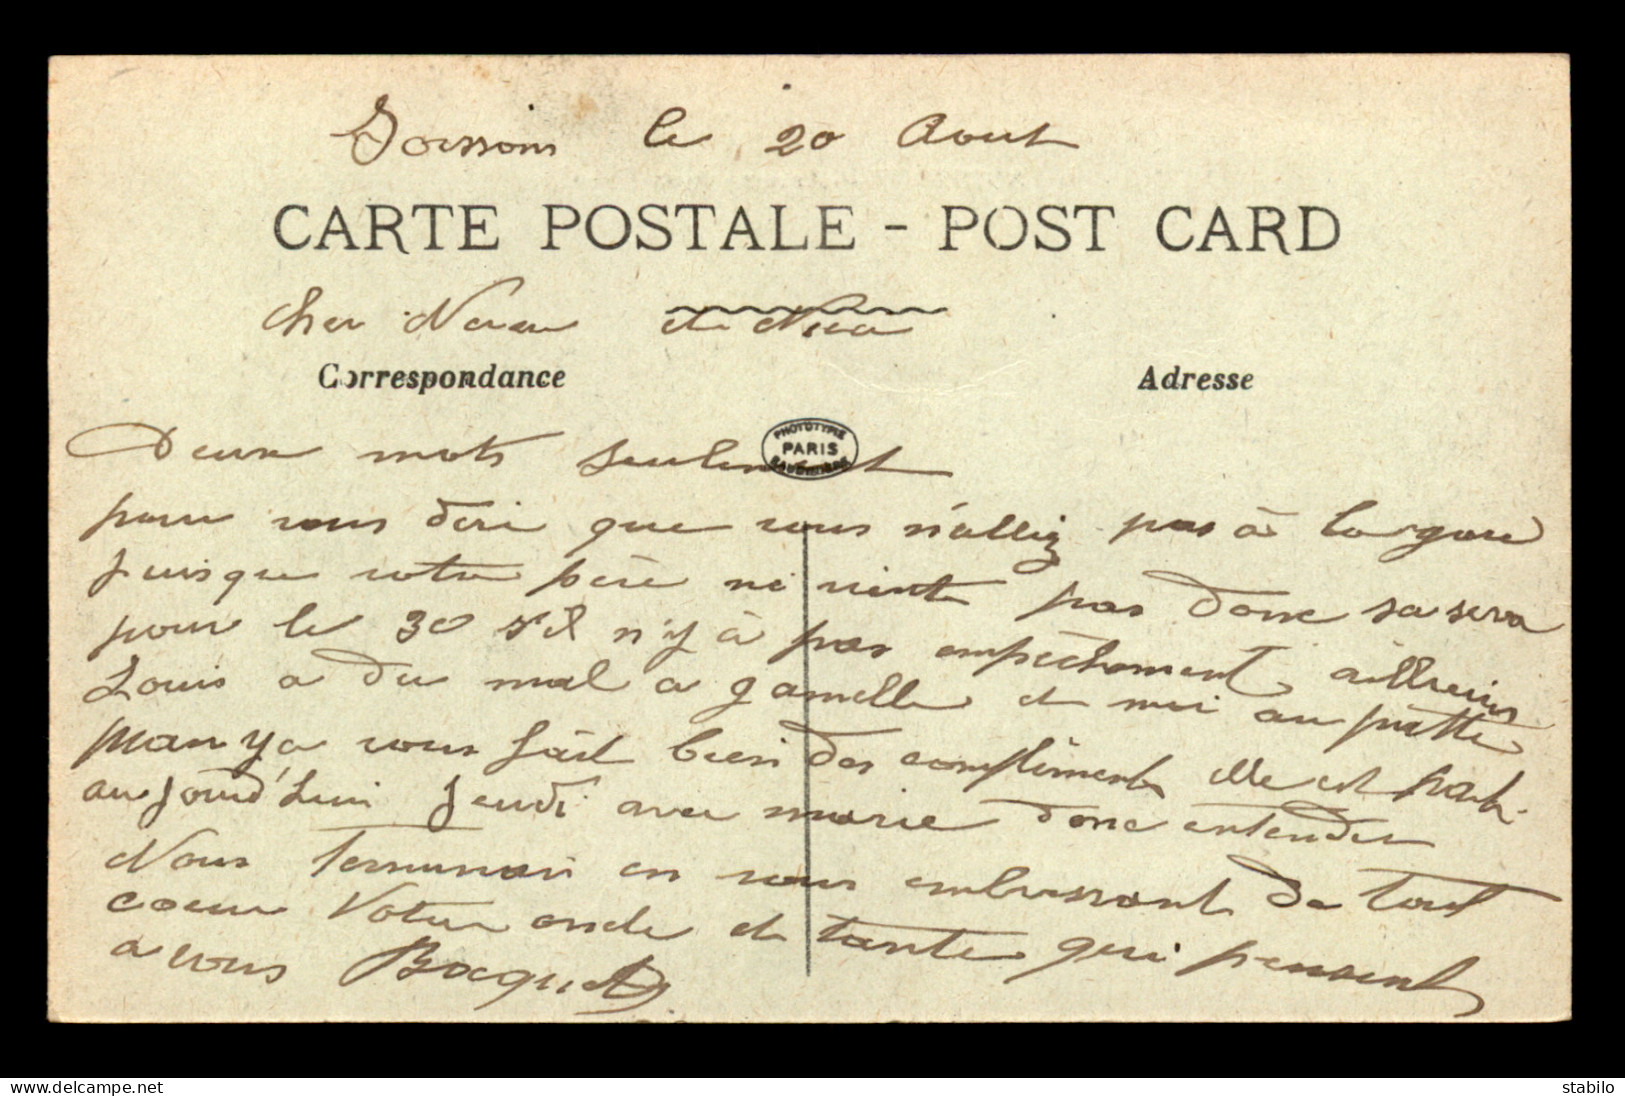 Soissons le 20 Aout
CARTE POSTALE - POST CARD
Cher Neveu et Niece
Correspondance
Adresse
PHOTOTYPIE
PARIS
Deux mots seulement
pour vous dire que vous n'alliez pas à la gare
puisque votre père ne vient pas donc sa sera
pour le 30 s'il n'y à pas empêchement ailleurs
Louis a du mal a gamelle et moi au
vous fait bien des compliments elle est parti
aujourd'hui Jeudi avec marie donc entendu
Nous Terminons en vous embrassant de tout
coeur Votre oncle et tante qui pensent
a vous Bocquet
www.delcampe.net
stabilo